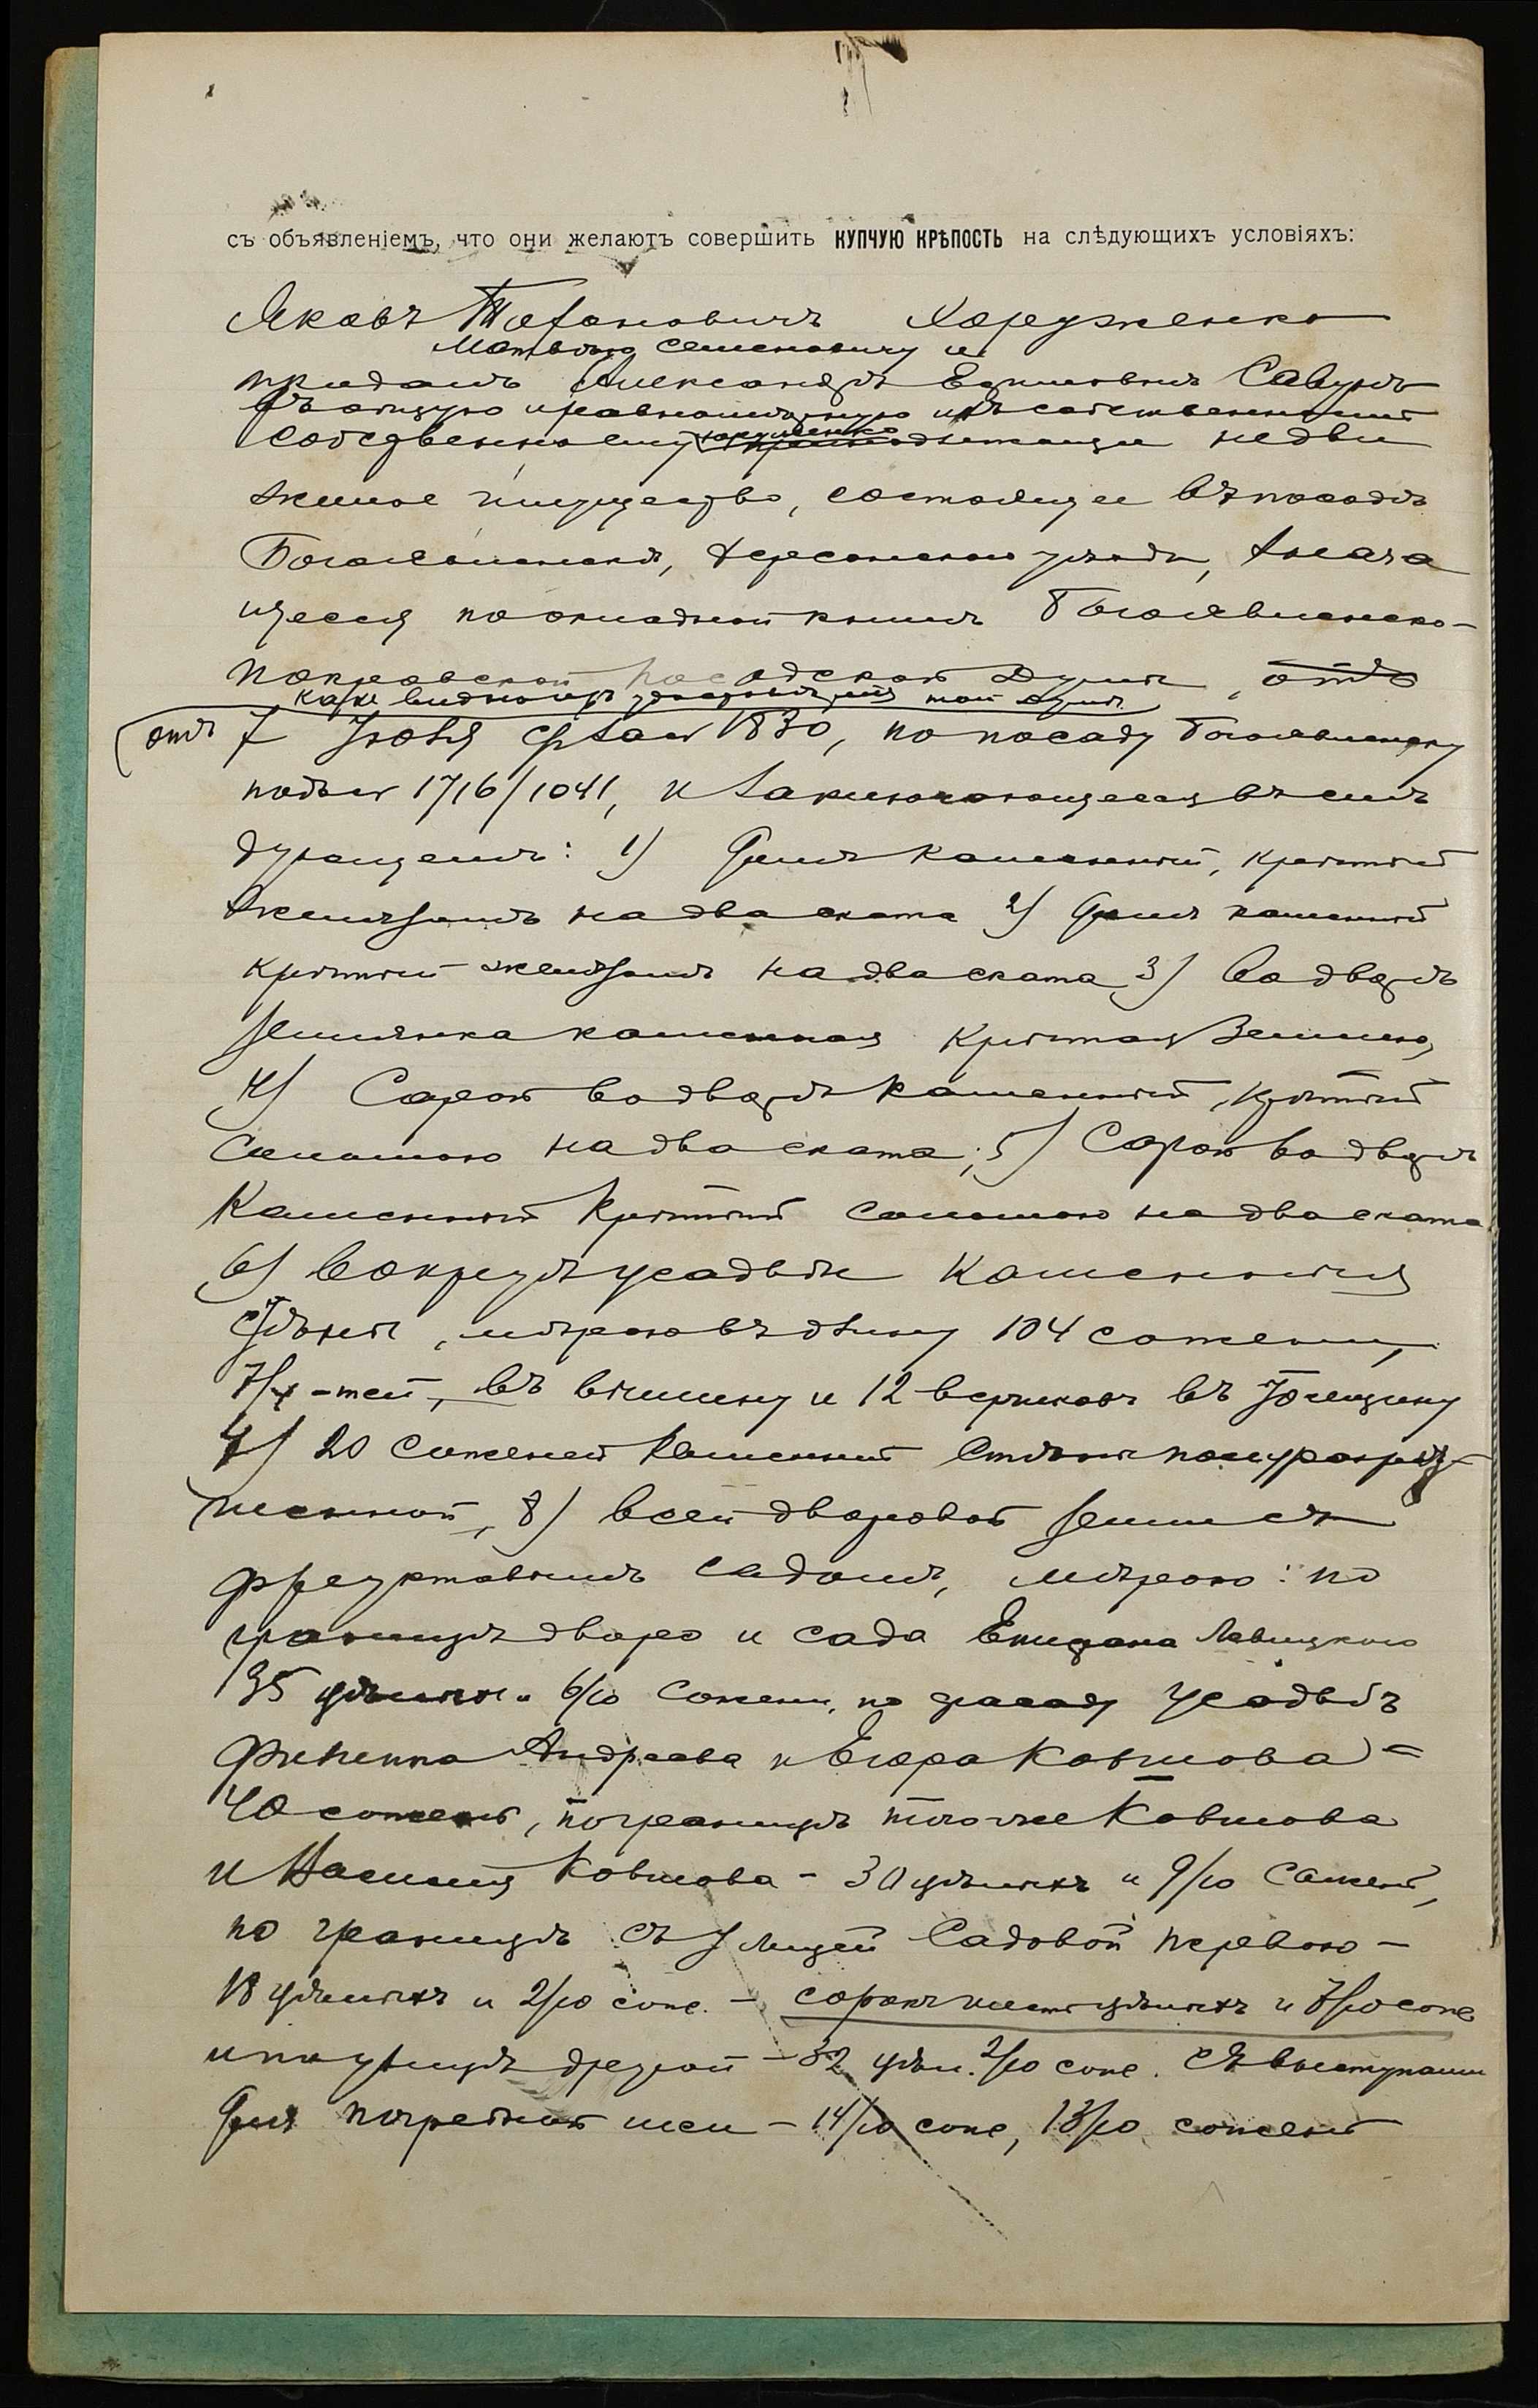 съ объявленіемъ, что они желаютъ совершить КУПЧУЮ КРѢПОСТЬ на слѣдующихъ условіяхъ:
Яковъ Хоруженко
Матвѣю Семеновичу и
продалъ Александрѣ Ефимовнѣ Савунъ
въ общую и равномѣрную ихъ собственность
собственно ему недви
жимое имущество, состоящее въ посадѣ
Богоявленскѣ, Херсонскаго уѣзда, знача
щееся по окладной книгѣ Богоявленско-
Покровской посадской Думы, отъ
какъ видно изъ удостовѣренія той Думы
отъ 7 Іюня с/г за № 1830, по посаду Богоявленску
подъ № 1716/1041, и заключающееся въ слѣ
дующемъ: 1) Домъ каменный, крытый
желѣзомъ на два ската 2) Домъ каменный
крытый желѣзомъ на два ската 3) Во дворѣ
землянка каменная крытая землею,
4) Сарай во дворѣ каменный, крытый
соломою на два ската; 5) Сарай во дворѣ
каменный крытый соломою на два ската
6) Вокругъ усадьбы каменныя
стѣны, мѣрою въ длину 104 сажени,
въ вышину и 12 вершковъ въ толщину
7) 20 саженей каменной стѣны полуразру-
шенной, 8) всей дворовой земли съ
фруктовымъ садомъ, мѣрою: по
границѣ двора и сада Левицкаго
35 цѣлыхъ и 6/10 сажени, по фасаду усадьбъ
Филиппа Андреева и Егора Ковшова =
40 сажень, по границѣ того же Ковшова
и Василія Ковшова - 30 цѣлыхъ и 9/10 сажень,
по границѣ съ улицей Садовой первою -
18 цѣлыхъ и 2/10 саж. - сорокъ шесть цѣлыхъ и 7/10 саж
и по улицѣ другой - 32 цѣл. 2/10 саж. съ выступами
для погребной шеи - 14/10 саж, 13/10 сажень